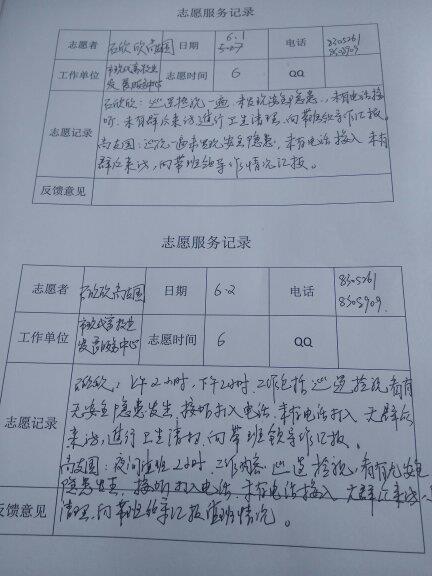 志愿服务记录
志愿者 石欣欣 高应国 日期 6.1 电话 8305261
5:07 8308909
工作单位 市政或高校生 志愿时间 6 QQ
发展服务中心
石欣欣:巡逻检视一遍,未发现安全隐患,未有电话接
听,未有群众来访,进行卫生清理,向带班领导作汇报。
志愿记录 高应国:巡视一遍未发现安全隐患,未有电话接入,未有
群众来访,向带班领导作情况汇报。
反馈意见
志愿服务记录
志愿者 石欣欣 高应国 日期 6.2 电话 8305261
8308909
工作单位 志愿时间 6 QQ
发展服务中心
石欣欣:上午2小时,下午2小时,工作包括巡逻检视看有
无安全隐患发生,接听打入电话,未有电话打入,无群众
志愿记录 来访,进行卫生清扫,向带班领导作汇报。
高应国:夜间值班2小时,工作内容巡逻检视,看有无安全
隐患发生,接听打入电话,未有电话接入,无群众来访,
反馈意见 清理,向带班领导汇报值班情况。